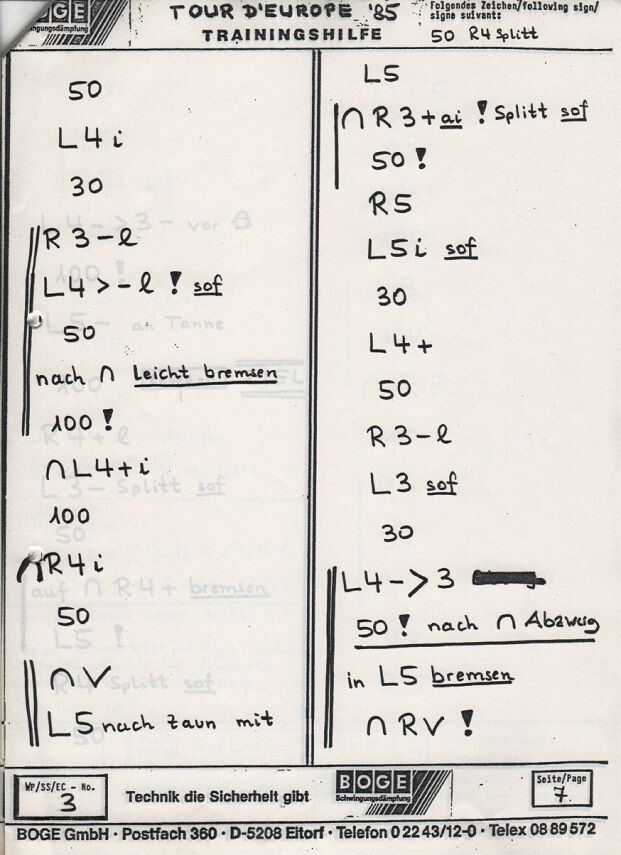 BOGE
TOUR D'EUROPE '85
TRAININGSHILFE
Folgendes Zeichen/following sign/
signe suivant:
50 R4 Splitt
50
L4 i
30
R 3 - l
L4 > - l ! sof
50
nach ∩ Leicht bremsen
100 !
∩ L4 + i
100
∩ R4 i
50
∩ V
L5 nach Zaun mit
L5
∩ R 3 + ai ! Splitt sof
50 !
R5
L5 i sof
30
L4 +
50
R3 - l
L3 sof
30
L4 -> 3
50 ! nach ∩ Abzweig
in L5 bremsen
∩ RV !
WP/SS/EC - No.
3
Technik die Sicherheit gibt
BOGE
Schwingungsdämpfung
Seite/Page
7
BOGE GmbH · Postfach 360 · D-5208 Eitorf · Telefon 0 22 43/12-0 · Telex 08 89 572